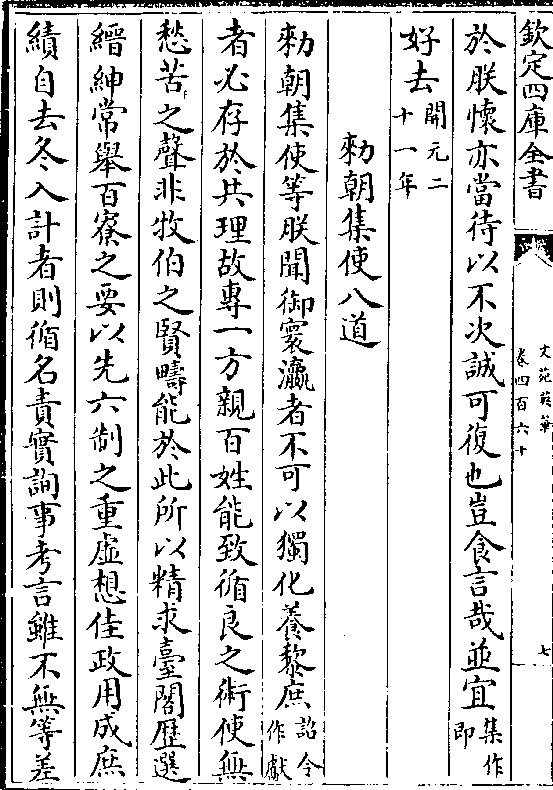 欽定四庫全書
文苑英華
卷四百六十
七
於朕懷亦當待以不次誠可復也豈食言哉並宜集作即
好去開元二十一年
勑朝集使八道
勑朝集使等朕聞御寰瀛者不可以獨化養黎庶詔令作獻
者必存於共理故專一方親百姓能致循良之術使無
愁苦之聲非牧伯之賢疇能於此所以精求臺閣歷選
縉紳常舉百寮之要以先六制之重虛想佳政用成庶
績自去冬入計者則循名責實詢事考言雖不無等差